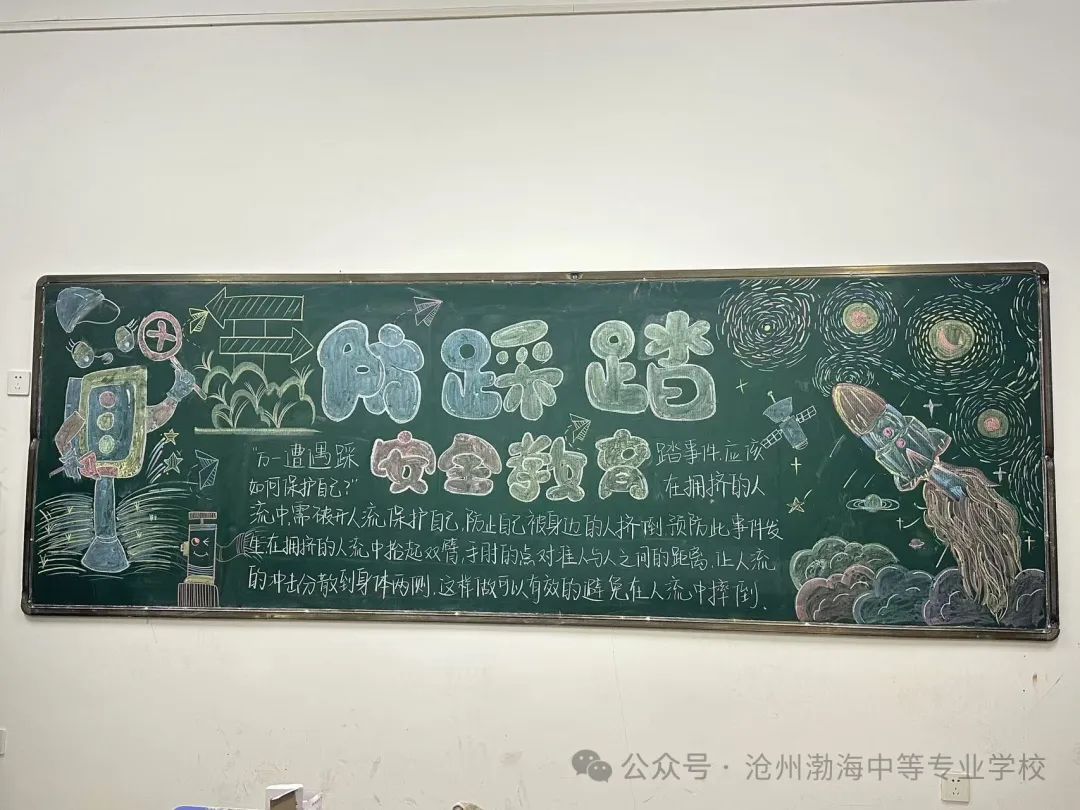 防踩踏
安全教育
"万一遭遇踩
踏事件应该
如何保护自己?"
在拥挤的人
流中,需破开人流,保护自己,防止自己被身边的人挤倒.预防此事件发
生在拥挤的人流中抬起双臂,手肘的点对准人与人之间的距离.让人流
的冲击分散到身体两侧.这样做可以有效的避免在人流中摔倒.
公众号·沧州渤海中等专业学校